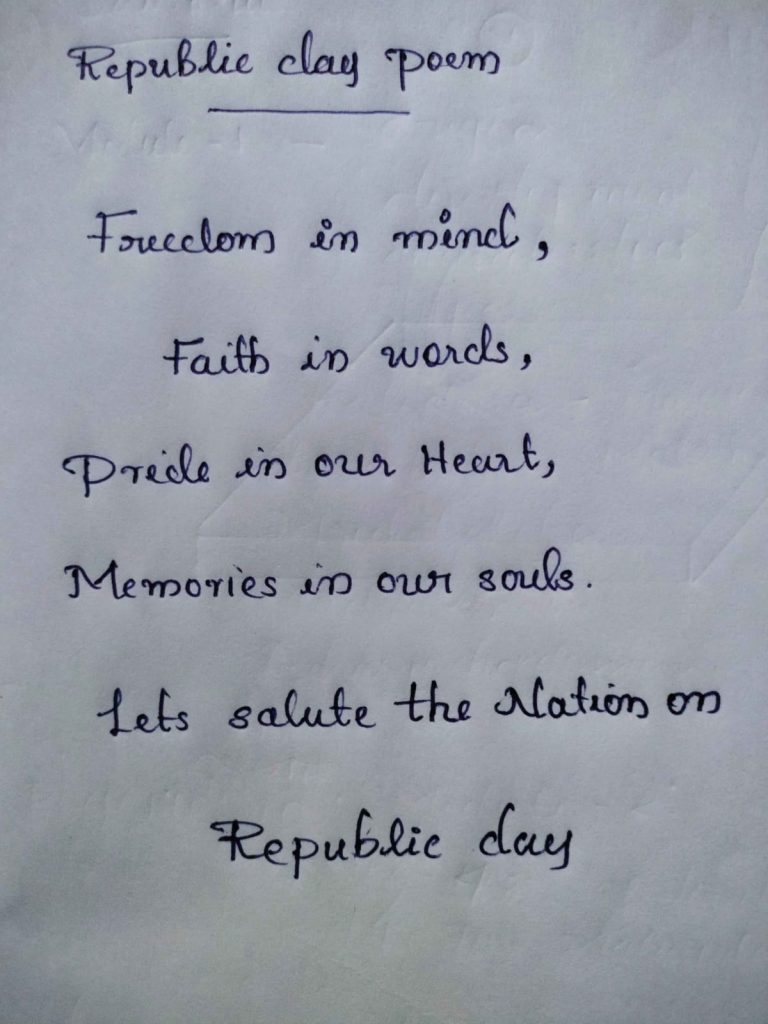 Republic day poem
Freedom in mind,
Faith in words,
Pride in our Heart,
Memories in our souls.
Lets salute the Nation on
Republic day